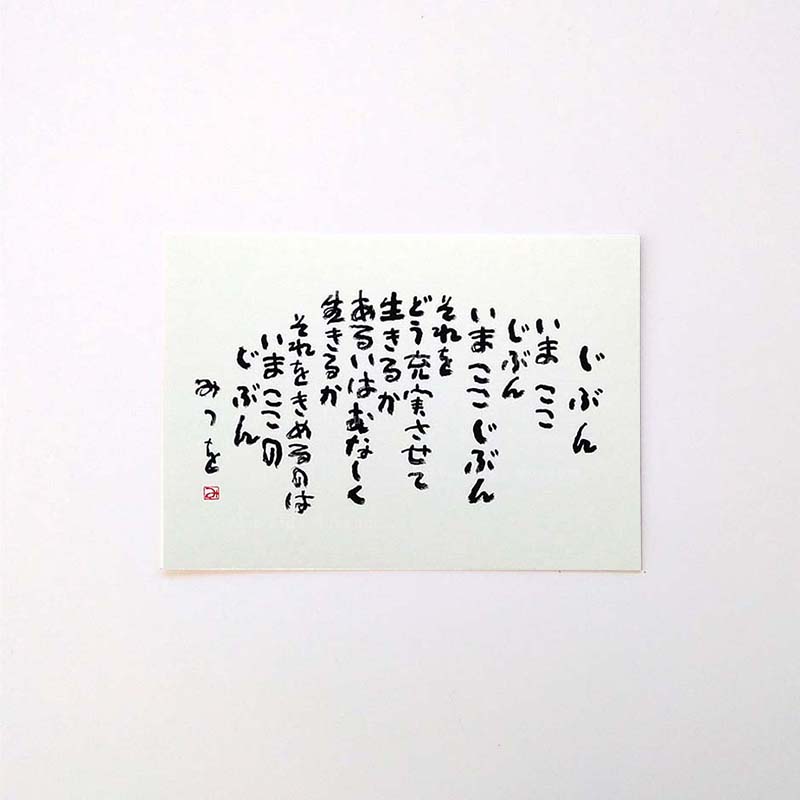 じぶん
いま ここ
じぶん
いま ここ じぶん
それを
どう充実させて
生きるか
あるいはむなしく
生きるか
それをきめるのは
いま ここの
じぶん
みつを
み